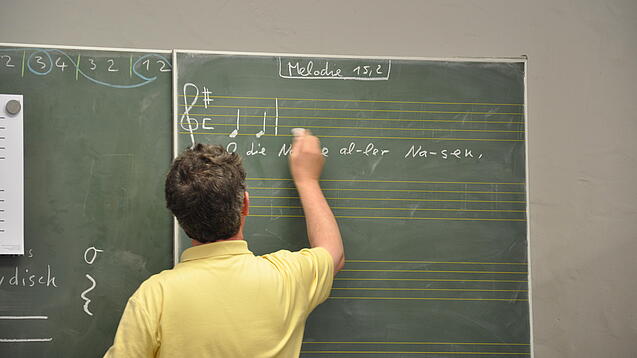 2 3 4 3 2 1 2
Melodie 15,2
O die N e al-ler Na-sen,
disch